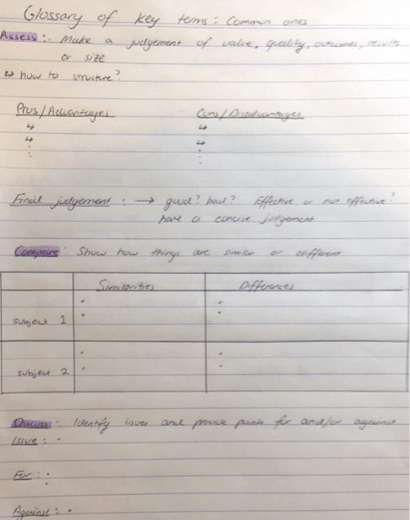 Glossary of key terms: Common ones
Assess: Make a judgement of value, quality, outcomes, results
or size
↳ how to structure?
Pros/Advantages Cons/Disadvantages
↳ ↳
↳ ↳
Final judgement: → good? bad? Effective or not effective?
have a concise judgement
Compare: Show how things are similar or different
Similarities Differences
subject 1
subject 2
Discuss: Identify issues and provide points for and/or against
Issue: •
For: •
Against: •